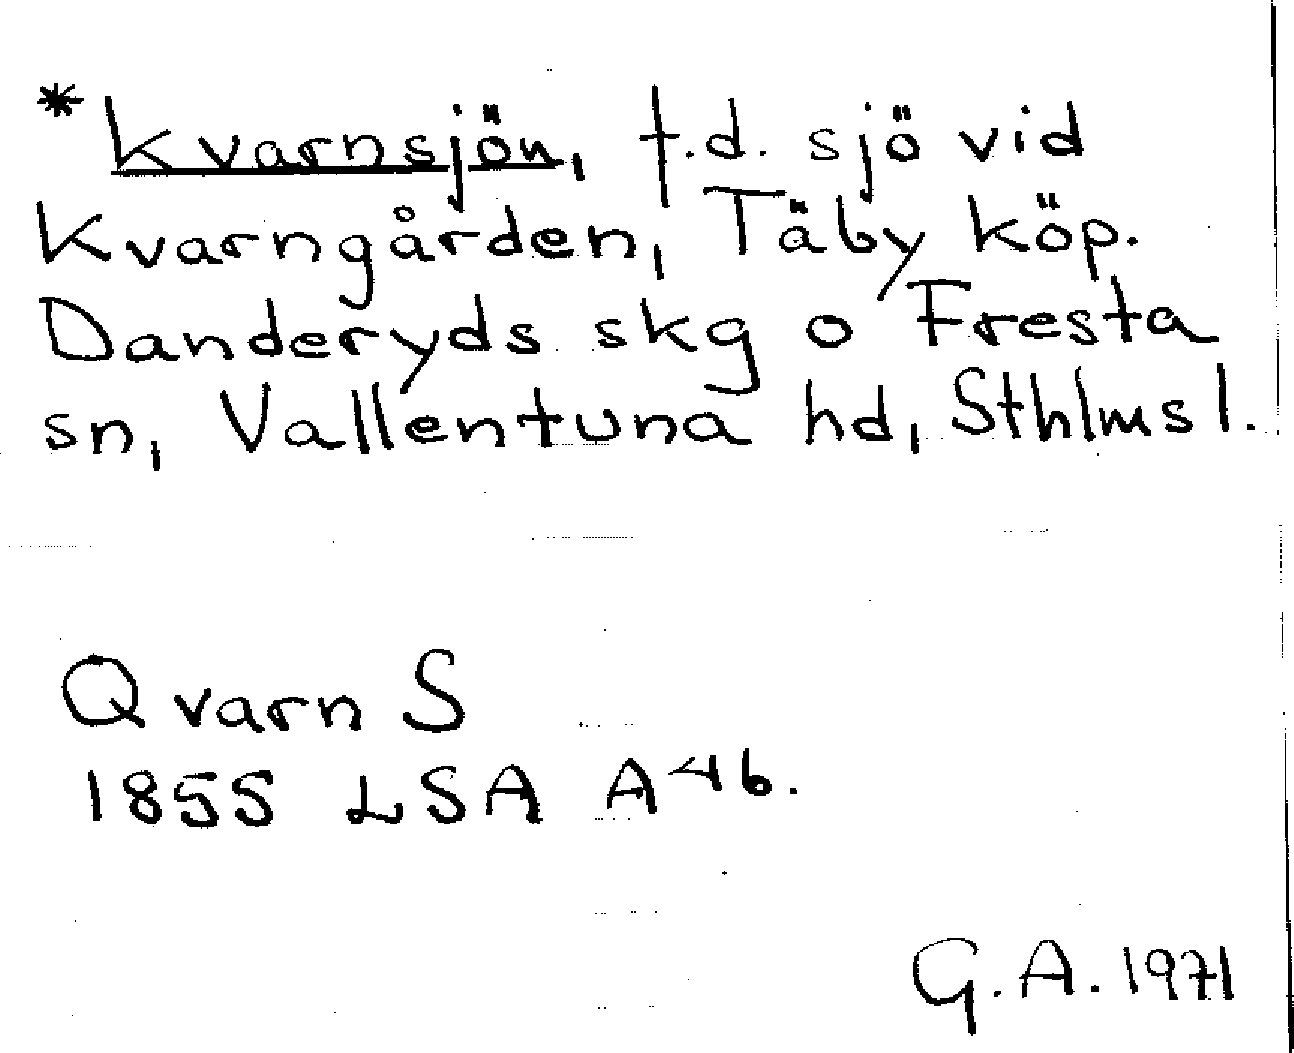 *Kvarnsjön, f.d. sjö vid
Kvarngården, Täby köp.
Danderyds skg o Fresta
sn, Vallentuna hd, Sthlms l.
Qvarn S
1855 LSA A46.
G.A. 1971